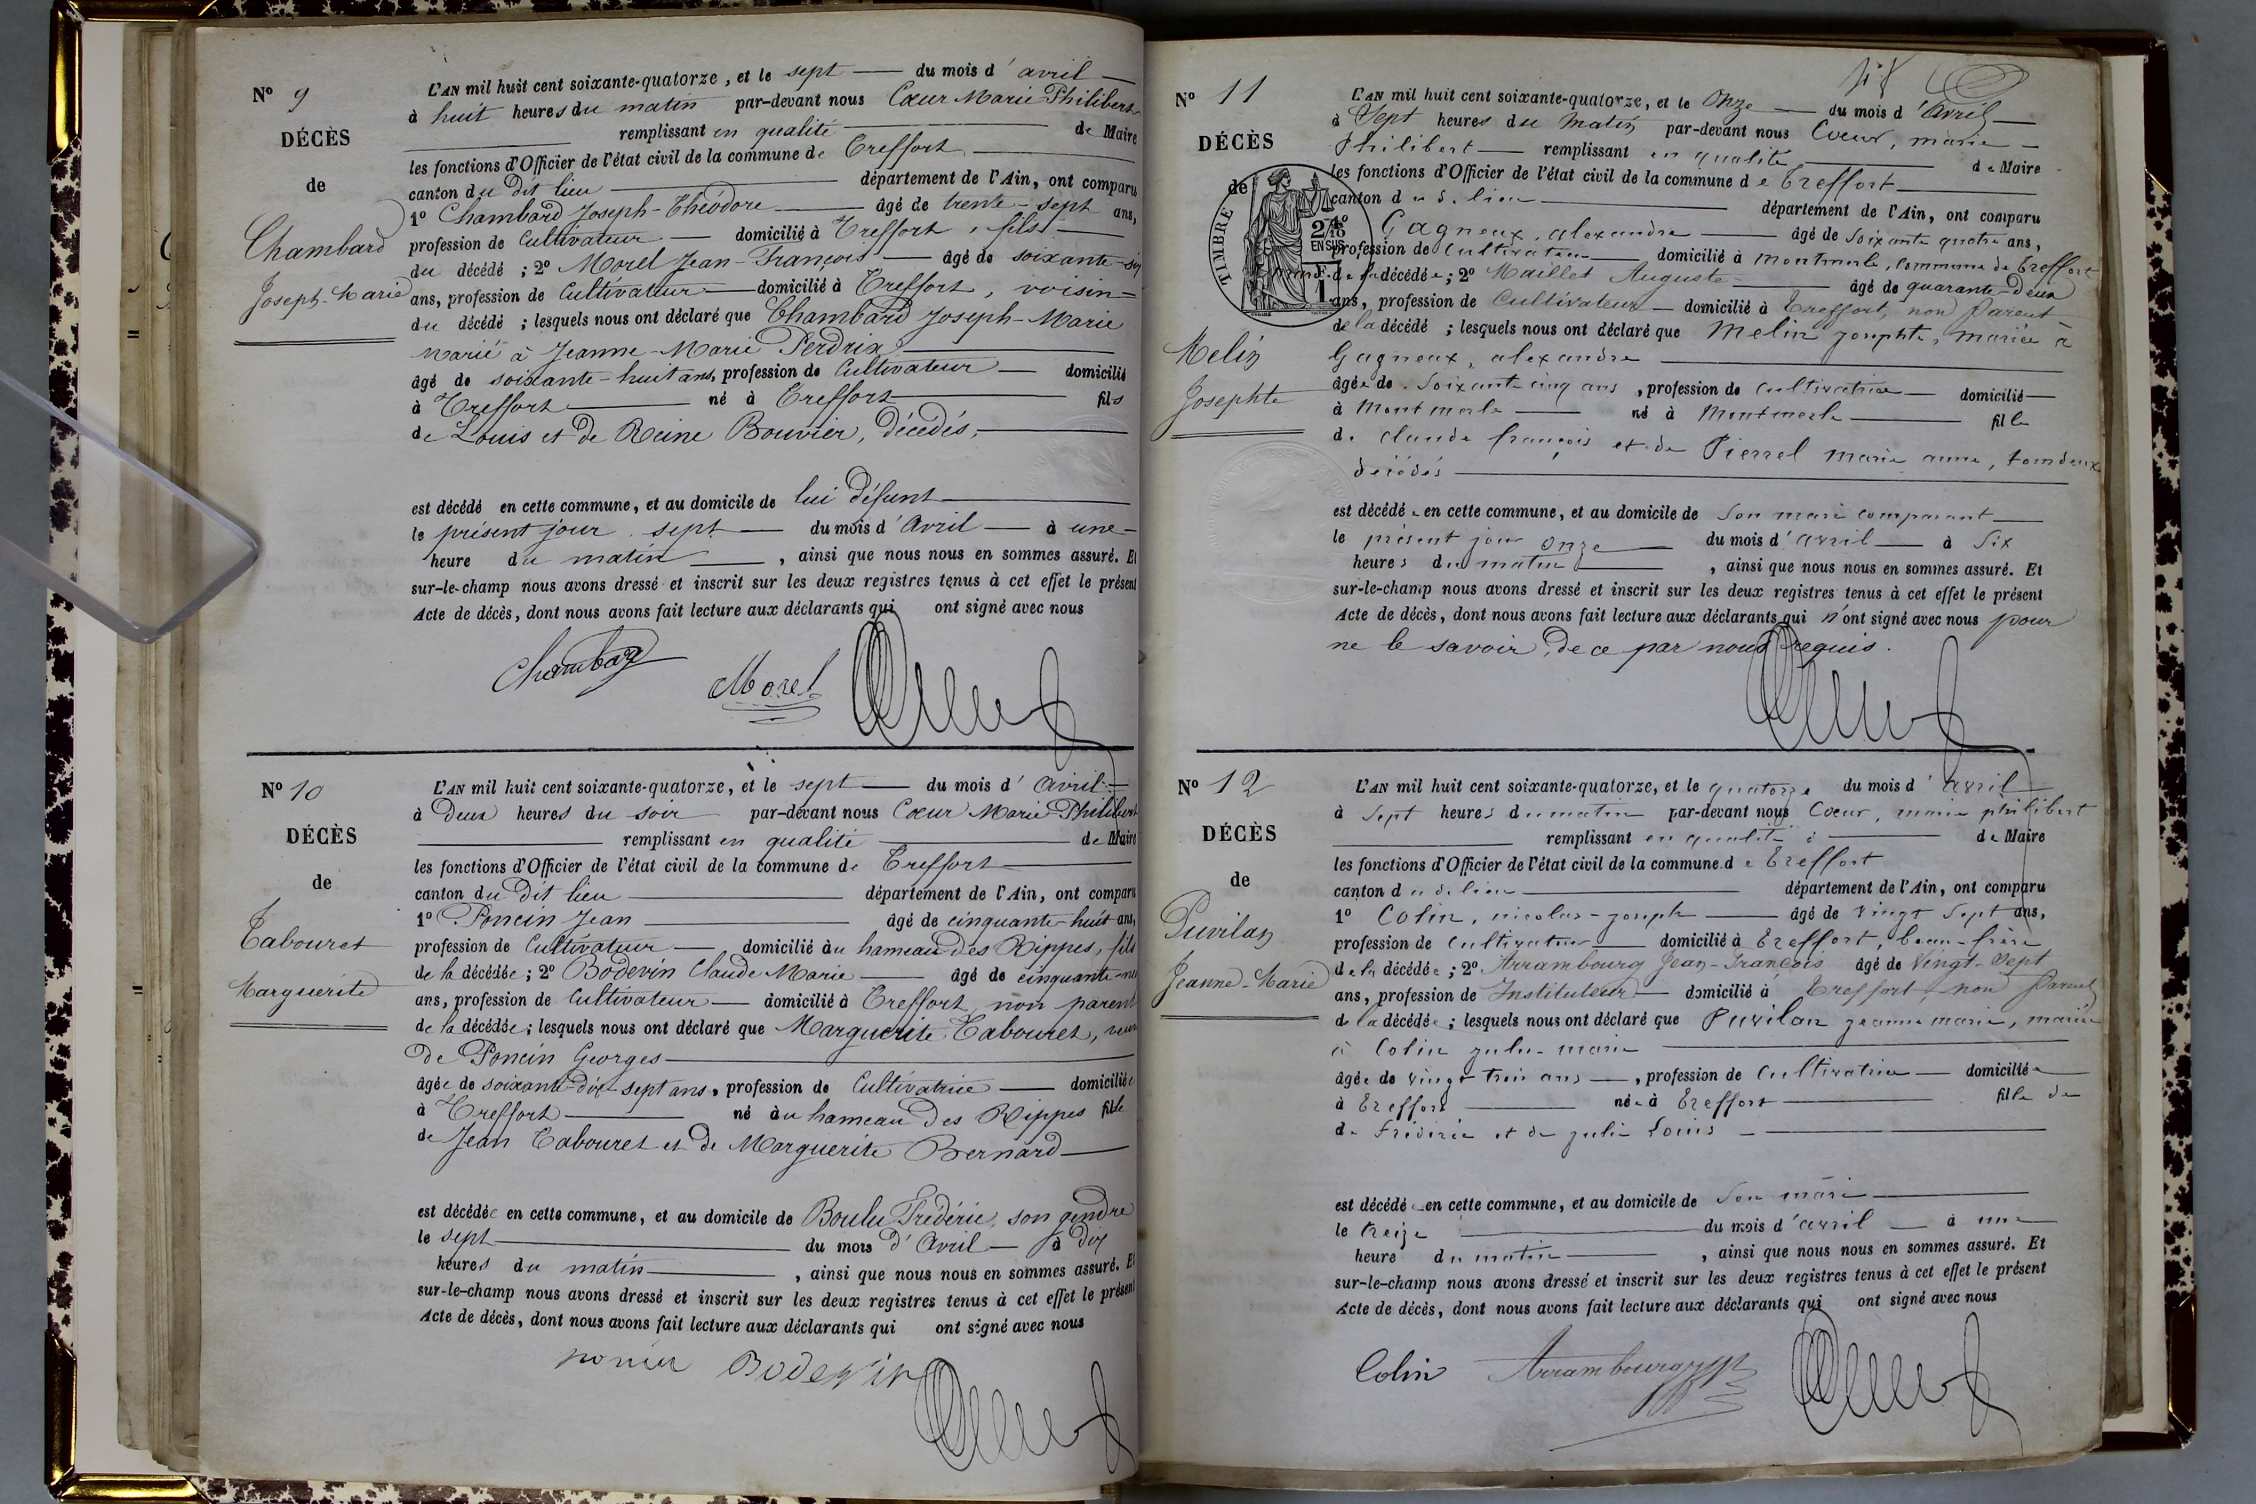 N° 9
DÉCÈS
de
Chambard
Joseph-Marie
L'AN mil huit cent soixante-quatorze, et le sept du mois d'avril
à huit heures du matin par-devant nous Cœur Marie Philibert
remplissant en qualité de Maire
les fonctions d'Officier de l'état civil de la commune de Treffort
canton du dit lieu département de l'Ain, ont comparu
1° Chambard Joseph-Théodore âgé de trente-sept ans,
profession de Cultivateur domicilié à Treffort, fils
du décédé ; 2° Morel Jean-François âgé de soixante-six
ans, profession de Cultivateur domicilié à Treffort, voisin
du décédé ; lesquels nous ont déclaré que Chambard Joseph-Marie
marié à Jeanne-Marie Perdrix
âgé de soixante-huit ans, profession de Cultivateur domicilié
à Treffort né à Treffort fils
de Louis et de Reine Bouvier, décédés,
est décédé en cette commune, et au domicile de lui défunt
le présent jour sept du mois d'Avril à une
heure du matin , ainsi que nous nous en sommes assuré. Et
sur-le-champ nous avons dressé et inscrit sur les deux registres tenus à cet effet le présent
Acte de décès, dont nous avons fait lecture aux déclarants qui ont signé avec nous
Chambard Morel
N° 10
DÉCÈS
de
Tabouret
Marguerite
L'AN mil huit cent soixante-quatorze, et le sept du mois d'Avril
à Deux heures du soir par-devant nous Cœur Marie Philibert
remplissant en qualité de Maire
les fonctions d'Officier de l'état civil de la commune de Treffort
canton du Dit lieu département de l'Ain, ont comparu
1° Poncin Jean âgé de cinquante-huit ans,
profession de Cultivateur domicilié au hameau des Rippes, fils
de la décédée ; 2° Bodevin Claude Marie âgé de cinquante-
ans, profession de Cultivateur domicilié à Treffort non parent
de la décédée ; lesquels nous ont déclaré que Marguerite Tabouret, veuve
de Poncin Georges
âgée de soixante-dix-sept ans, profession de Cultivatrice domiciliée
à Treffort né au hameau des Rippes fille
de Jean Tabouret et de Marguerite Bernard
est décédée en cette commune, et au domicile de Boulu Frédéric, son gendre
le sept du mois d'Avril à dix
heures du matin , ainsi que nous nous en sommes assuré. Et
sur-le-champ nous avons dressé et inscrit sur les deux registres tenus à cet effet le présent
Acte de décès, dont nous avons fait lecture aux déclarants qui ont signé avec nous
Bodevin
N° 11
DÉCÈS
de
TIMBRE
2/10
EN SUS
Melin
Josephte
L'AN mil huit cent soixante-quatorze, et le Onze du mois d'Avril
à Sept heures du Matin par-devant nous Cœur, marie
Philibert remplissant en qualité de Maire
les fonctions d'Officier de l'état civil de la commune de Treffort
canton du d. lieu département de l'Ain, ont comparu
Gagneux, alexandre âgé de soixante quatre ans,
profession de Cultivateur domicilié à Montmerle, commune de Treffort
mari de la décédée ; 2° Maillet Auguste âgé de quarante-deux
ans, profession de Cultivateur domicilié à Treffort, non Parent
de la décédé ; lesquels nous ont déclaré que Melin josephte, mariée à
Gagneux, alexandre
âgée de soixante cinq ans, profession de cultivatrice domicilié
à Montmerle né à Montmerle fille
de claude françois et de Pierrel marie anne, tous deux
décédés
est décédée en cette commune, et au domicile de son mari comparant
le présent jour onze du mois d'avril à six
heures du matin , ainsi que nous nous en sommes assuré. Et
sur-le-champ nous avons dressé et inscrit sur les deux registres tenus à cet effet le présent
Acte de décès, dont nous avons fait lecture aux déclarants qui n'ont signé avec nous pour
ne le savoir, de ce par nous requis.
N° 12
DÉCÈS
de
Puvilan
Jeanne-Marie
L'AN mil huit cent soixante-quatorze, et le quatorze du mois d'avril
à sept heures du matin par-devant nous Cœur, marie philibert
remplissant en qualité de Maire
les fonctions d'Officier de l'état civil de la commune de Treffort
canton du d. lieu département de l'Ain, ont comparu
1° Colin, nicolas-joseph âgé de vingt sept ans,
profession de cultivateur domicilié à Treffort, beau-frère
de la décédée ; 2° Arrambourg Jean-François âgé de Vingt-Sept
ans, profession de Instituteur domicilié à Treffort, non Parent
de la décédée ; lesquels nous ont déclaré que Puvilan jeanne marie, mariée
à Colin marie
âgée de vingt trois ans, profession de Cultivatrice domiciliée
à Treffort née à Treffort fille de
de Frédéric et de julie Louis
est décédée en cette commune, et au domicile de son mari
le treize du mois d'avril à une
heure du matin , ainsi que nous nous en sommes assuré. Et
sur-le-champ nous avons dressé et inscrit sur les deux registres tenus à cet effet le présent
Acte de décès, dont nous avons fait lecture aux déclarants qui ont signé avec nous
Colin Arrambourg